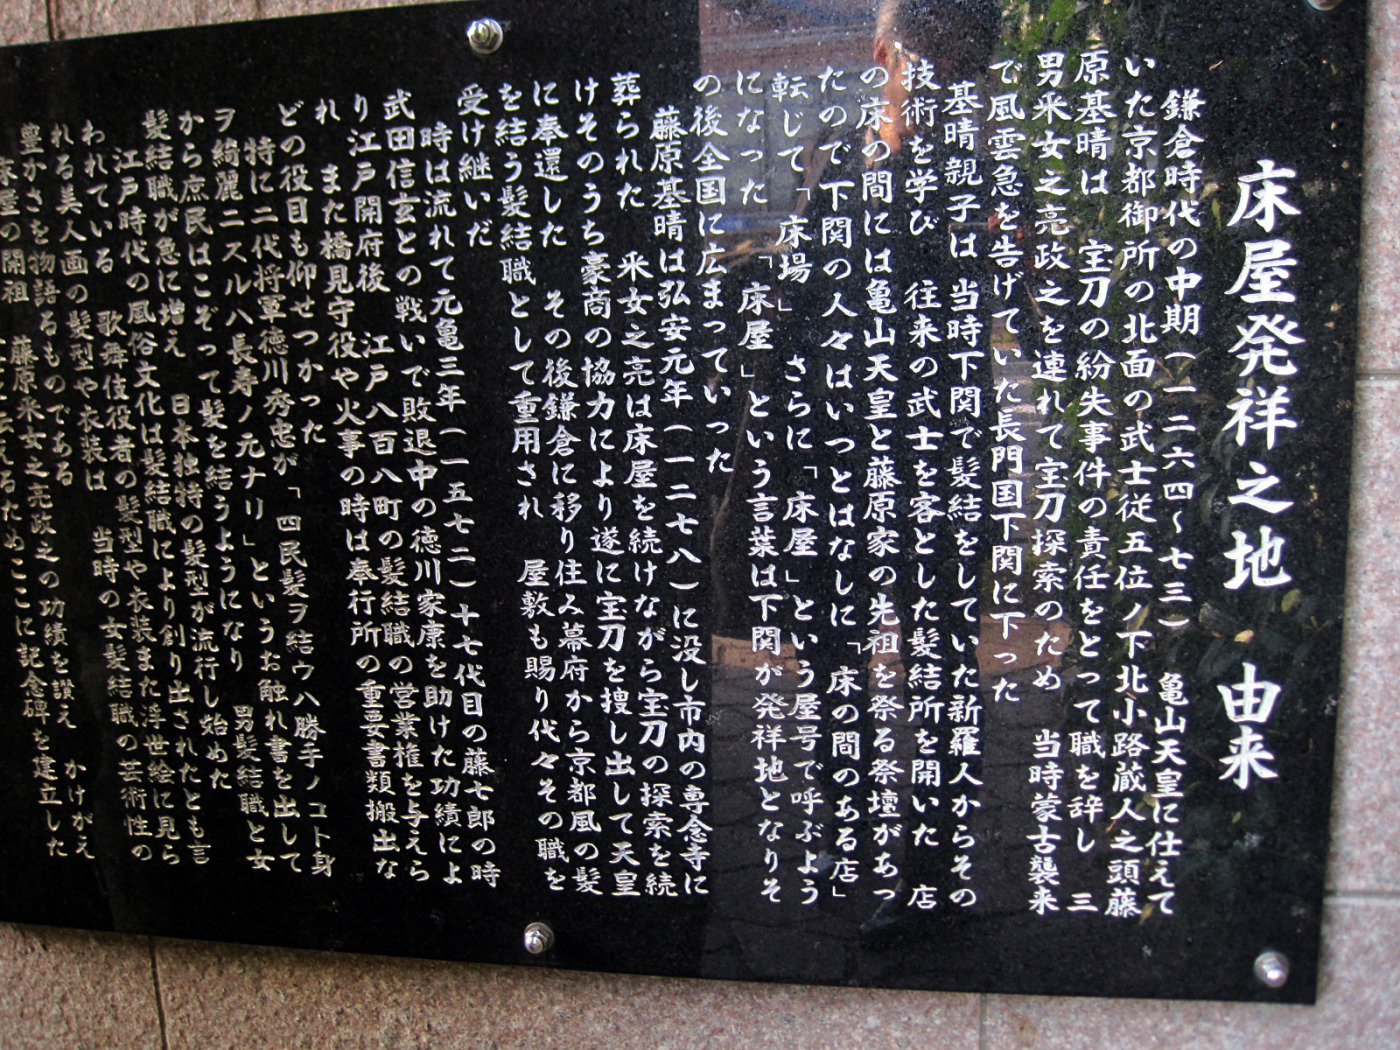 床屋発祥之地　由来
鎌倉時代の中期(一二六四〜七三)　亀山天皇に仕えて
いた京都御所の北面の武士従五位ノ下北小路蔵人之頭藤
原基晴は　宝刀の紛失事件の責任をとって職を辞し　三
男采女之亮政之を連れて宝刀探索のため　当時蒙古襲来
で風雲急を告げていた長門国下関に下った
基晴親子は　当時下関で髪結をしていた新羅人からその
技術を学び　往来の武士を客とした髪結所を開いた　店
の床の間には亀山天皇と藤原家の先祖を祭る祭壇があっ
たので下関の人々はいつとはなしに「床の間のある店」
転じて「床場」　さらに「床屋」という屋号で呼ぶよう
になった　「床屋」という言葉は下関が発祥地となりそ
の後全国に広まっていった
藤原基晴は弘安元年(一二七八)に没し市内の専念寺に
葬られた　采女之亮は床屋を続けながら宝刀の探索を続
けそのうち豪商の協力により遂に宝刀を捜し出して天皇
に奉還した　その後鎌倉に移り住み幕府から京都風の髪
を結う髪結職として重用され　屋敷も賜り代々その職を
受け継いだ
時は流れて元亀三年(一五七二)十七代目の藤七郎の時
武田信玄との戦いで敗退中の徳川家康を助けた功績によ
り江戸開府後　江戸八百八町の髪結職の営業権を与えら
れ　また橋見守役や火事の時は奉行所の重要書類搬出な
どの役目も仰せつかった
特に二代将軍徳川秀忠が「四民髪ヲ結ウハ勝手ノコト身
ヲ綺麗ニスルハ長寿ノ元ナリ」というお触れ書を出して
から庶民はこぞって髪を結うようになり　男髪結職と女
髪結職が急に増え　日本独特の髪型が流行し始めた
江戸時代の風俗文化は髪結職により創り出されたとも言
われている　歌舞伎役者の髪型や衣装また浮世絵に見ら
れる美人画の髪型や衣装は　当時の女髪結職の芸術性の
豊かさを物語るものである
床屋の開祖　藤原采女之亮政之の功績を讃え　かけがえ
えるためここに記念碑を建立した